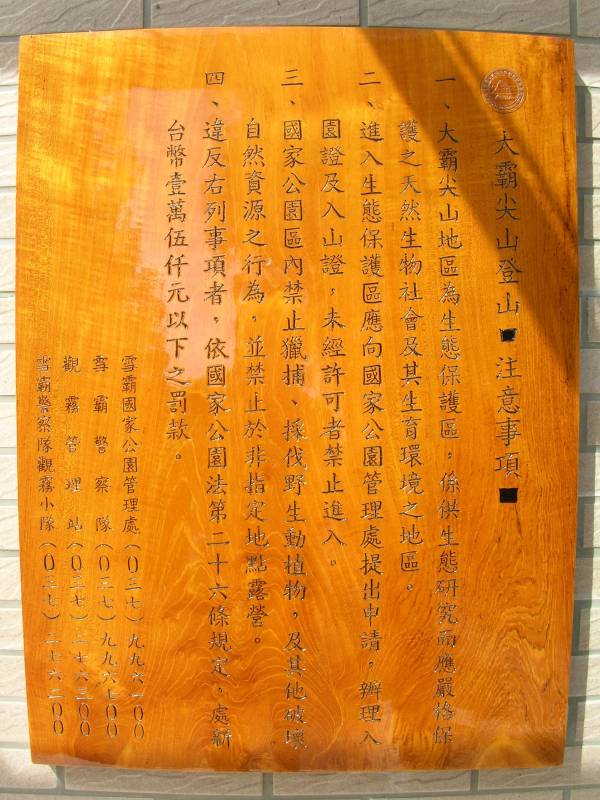 大霸尖山登山■注意事項■
一、大霸尖山地區為生態保護區，係供生態研究而應嚴格保
護之天然生物社會及其生育環境之地區。
二、進入生態保護區應向國家公園管理處提出申請，辦理入
園證及入山證，未經許可者禁止進入。
三、國家公園區內禁止獵捕、採伐野生動植物，及其他破壞
自然資源之行為，並禁止於非指定地點露營。
四、違反右列事項者，依國家公園法第二十六條規定，處新
台幣壹萬伍仟元以下之罰款。
雪霸國家公園管理處（０三七）九九六一００
雪霸警察隊（０三七）九九六七００
觀霧管理站（０三七）二七六三００
雪霸警察隊觀霧小隊（０三七）二七六二００